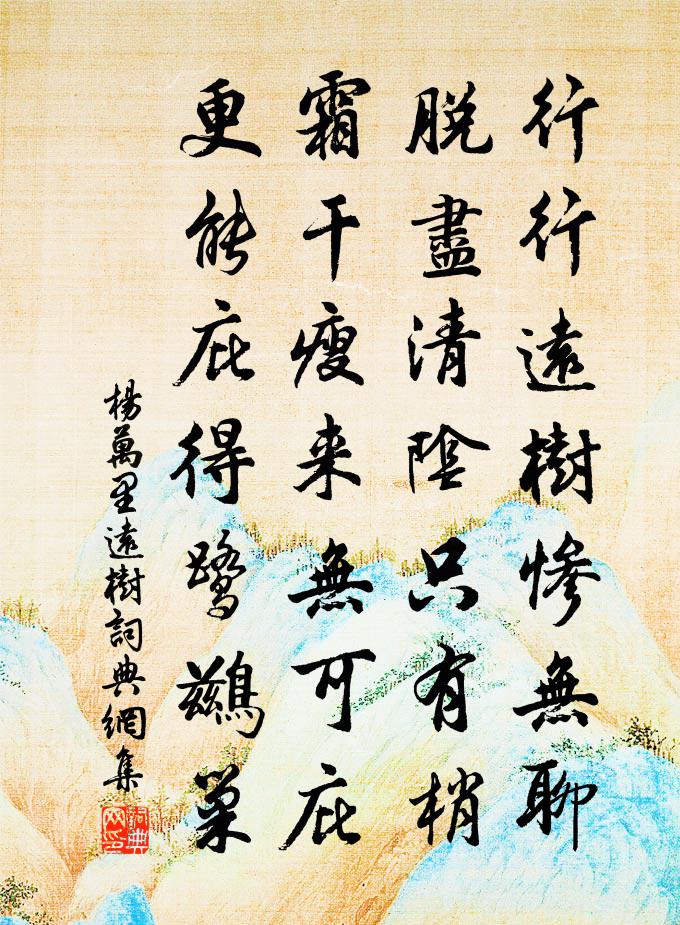 行行遠樹慘無聊
脱盡清陰只有梢
霜干瘦来無可庇
更能庇得鷺鷀巢
楊萬里遠樹詞典網集
詞典
网印